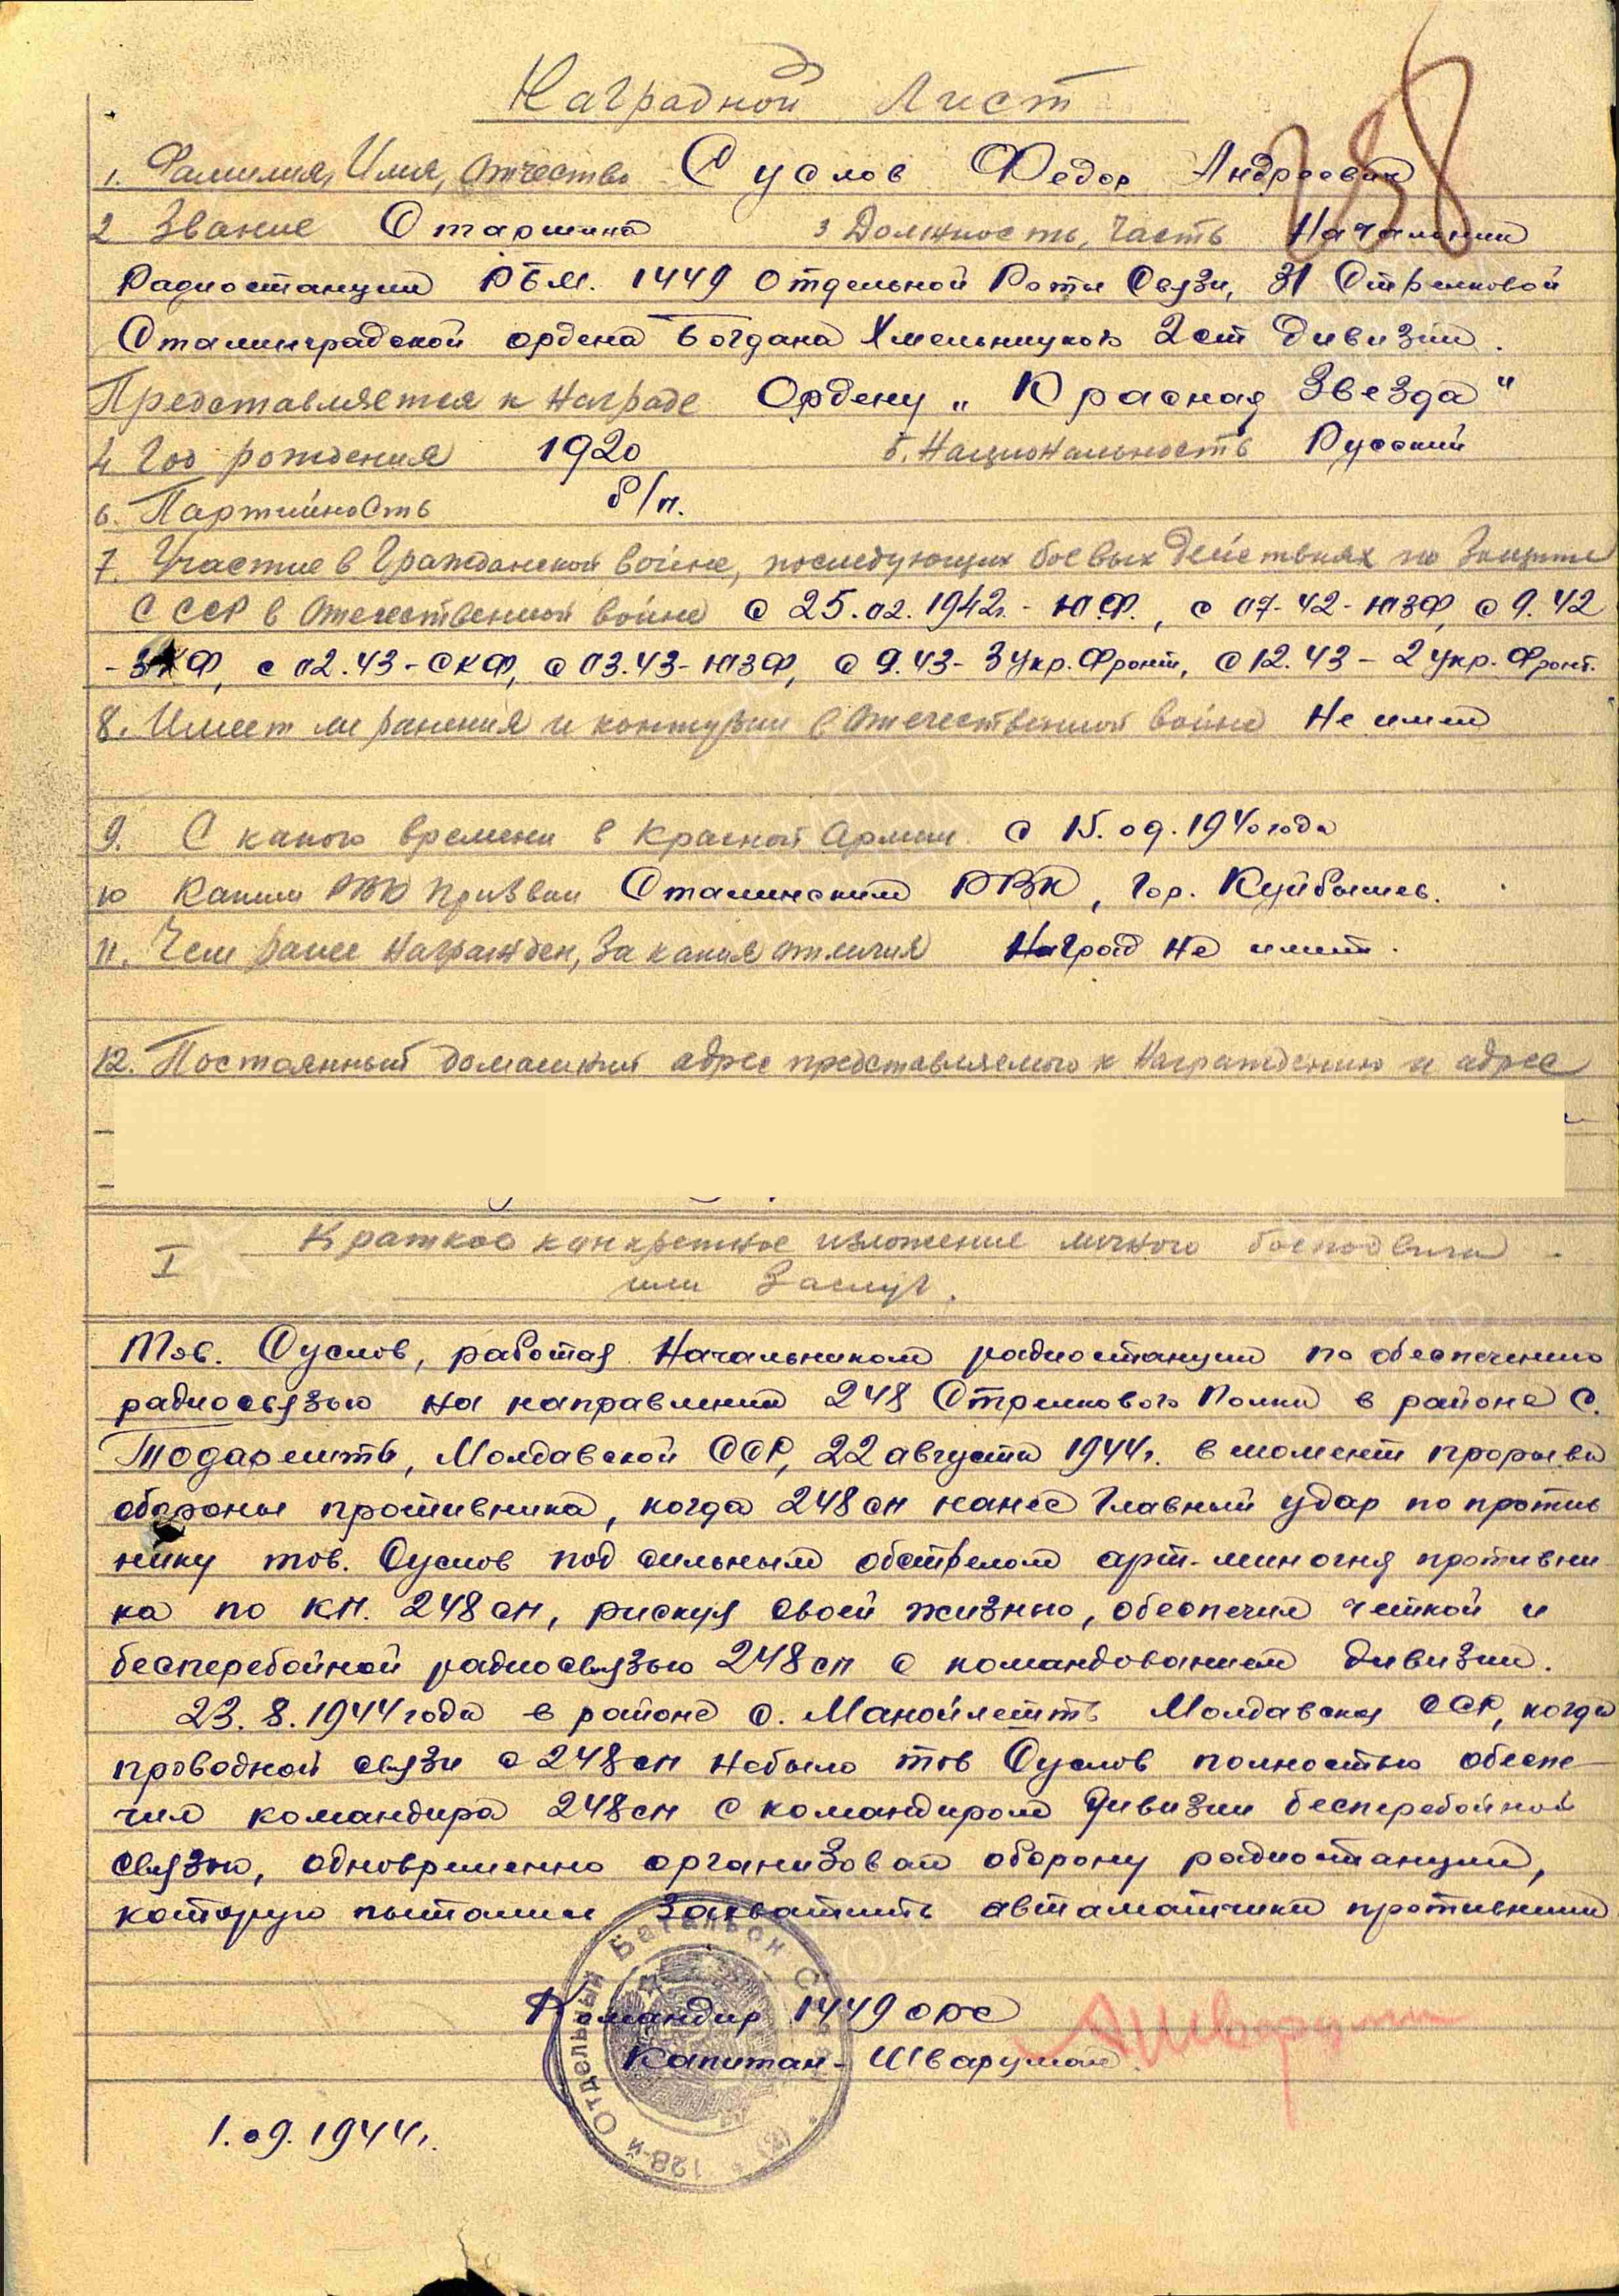 Наградной Лист
238
1. Фамилия, Имя, Отчество Суслов Федор Андреевич
2 Звание Старшина 3 Должность, Часть Начальник
Радиостанции РБМ. 1449 Отдельной Роты Связи, 31 Стрелковой
Сталинградской ордена Богдана Хмельницкого 2 ст Дивизии.
Представляется к Награде Ордену „Красная Звезда"
4. Год рождения 1920 5. Национальность Русский
6. Партийность б/п.
7. Участие в Гражданской войне, последующих боевых действиях по Защите
СССР в Отечественной войне с 25.02.1942г. - Ю.Ф., с 07-42-ЮЗФ, с 9.42
- ЗКФ, с 02.43-СКФ, с 03.43-ЮЗФ, с 9.43-3 Укр. Фронт, с 12.43-2 Укр. Фронт.
8. Имеет ли ранения и контузии в Отечественной войне Не имел
9. С какого времени в Красной Армии с 15.09.1940 года
10 Каким РВК Призван Сталинским РВК, гор. Куйбышев.
11. Чем ранее Награжден, За какия отличия Наград не имеет.
12. Постоянный домашний адрес представляемого к Награждению и адрес
I Краткое конкретное изложение личного боеподвига
или Заслуг.
Тов. Суслов, работая Начальником радиостанции по обеспечению
радиосвязью на направлении 248 Стрелкового Полка в районе с.
Тодарешть, Молдавской ССР, 22 августа 1944г. в момент прорыва
обороны противника, когда 248 сп нанес Главный удар по против
нику тов. Суслов под сильным обстрелом арт-миногня противни
ка по КП. 248 сп, рискуя своей жизнью, обеспечил четкой и
бесперебойной радиосвязью 248 сп с командованием дивизии.
23.8.1944 года в районе с. Манойлешть Молдавская ССР, когда
проводной связи с 248 сп небыло тов Суслов полностью обеспе-
чил командира 248 сп с командиром Дивизии бесперебойной
связью, одновременно организовал оборону радиостанции,
которую пытались Захватить автаматчики противника
Командир 1449 орс
Капитан- Шварцман.
128-й Отдельный Батальон Связи
1.09.1944г.